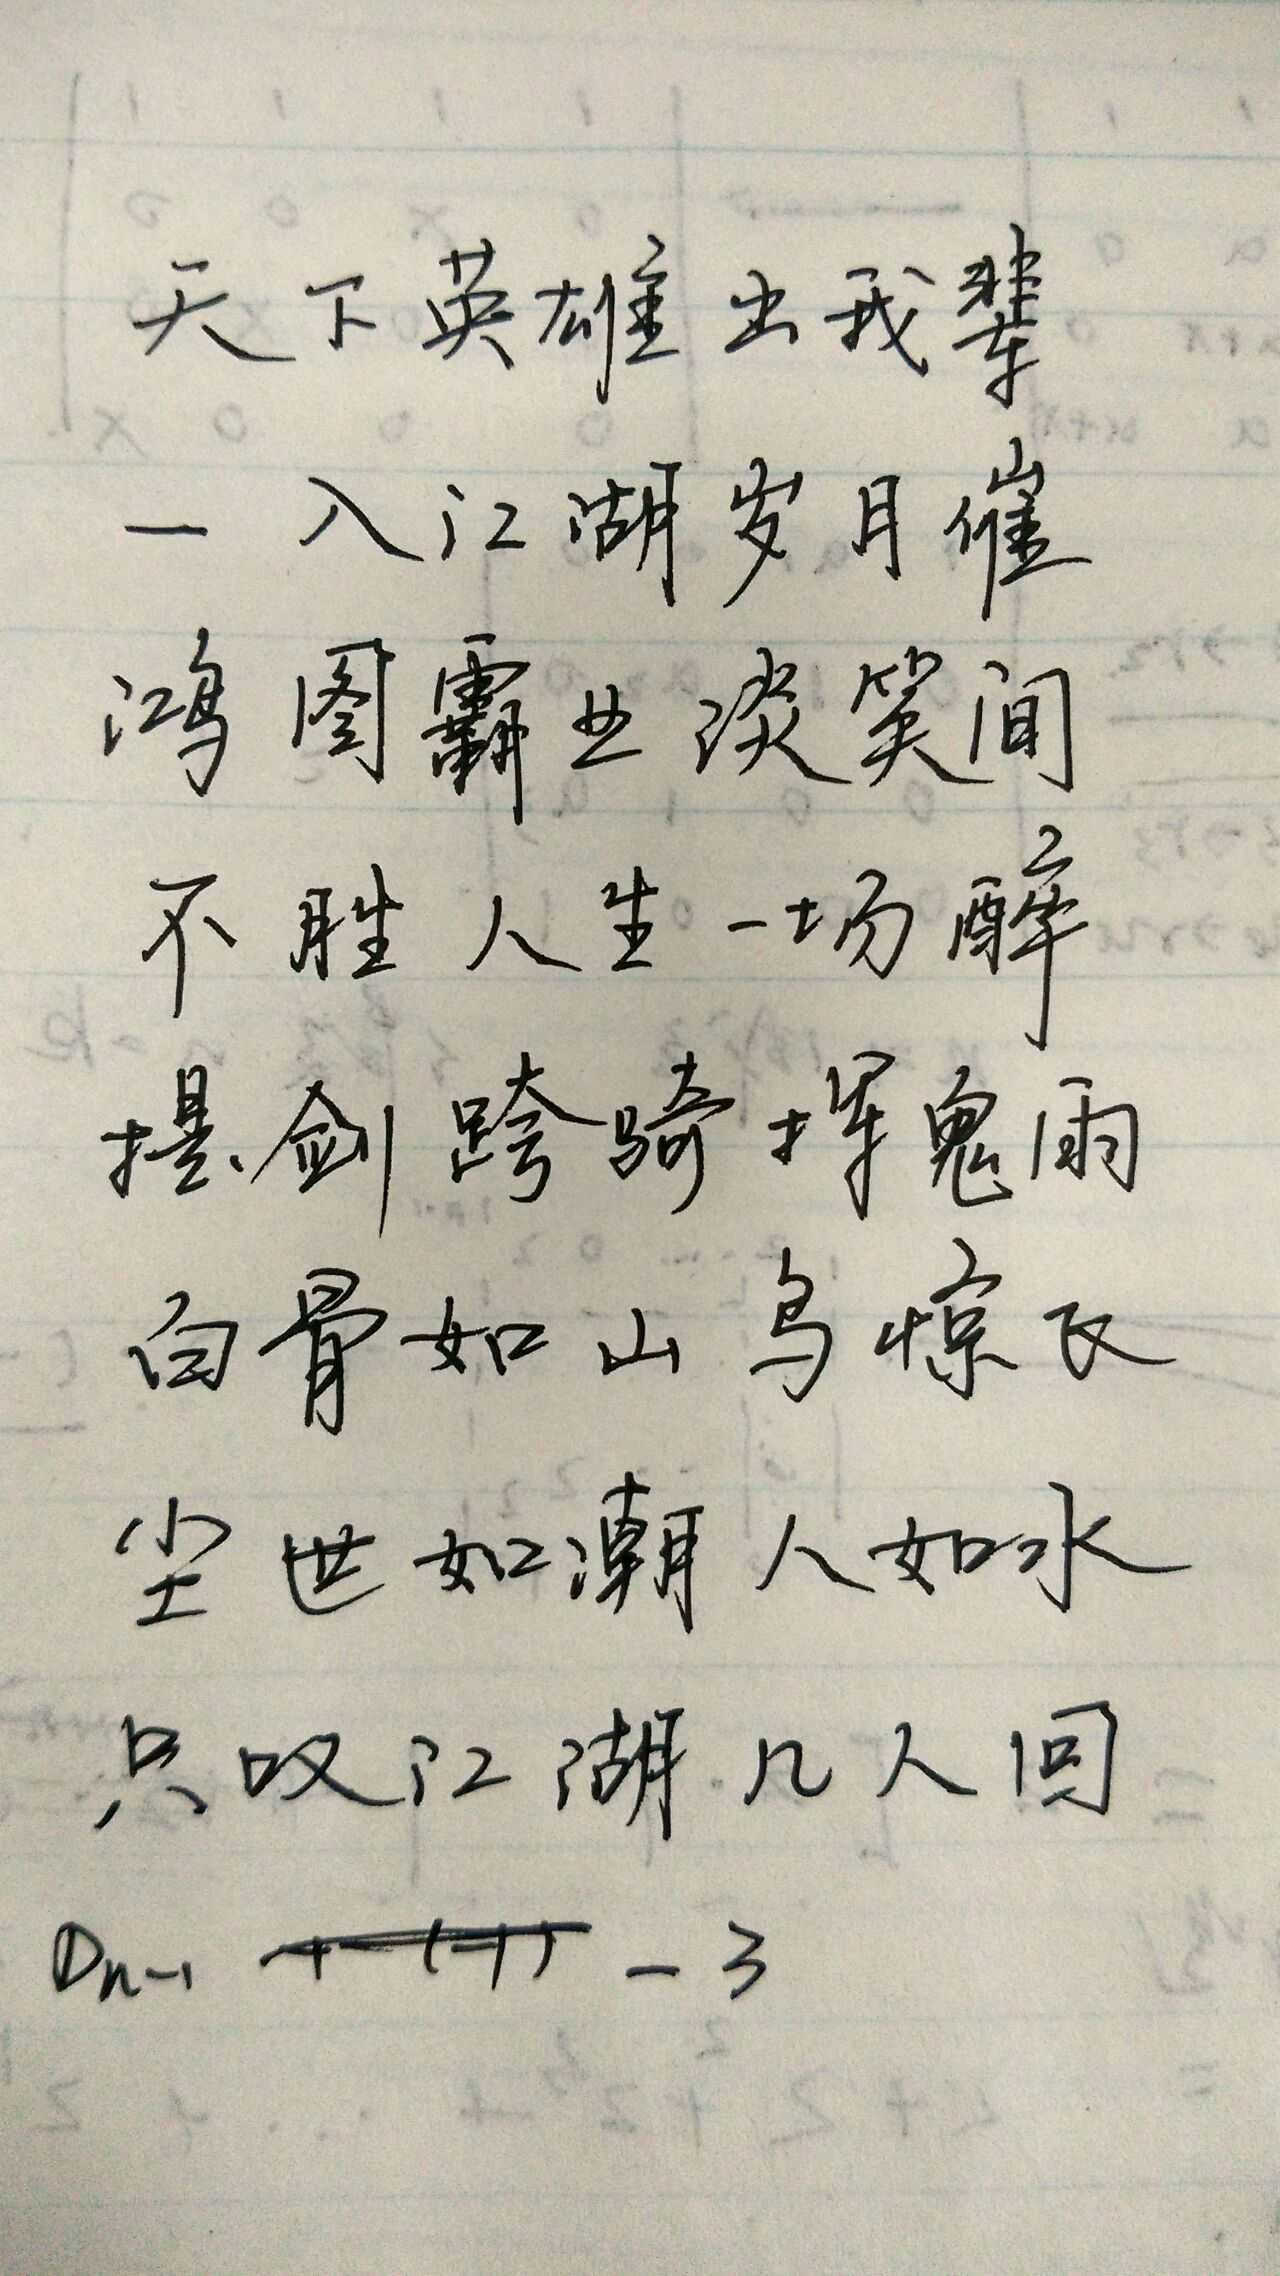 天下英雄出我辈
一入江湖岁月催
鸿图霸业谈笑间
不胜人生一场醉
提剑跨骑挥鬼雨
白骨如山鸟惊飞
尘世如潮人如水
只叹江湖几人回
Dn-1 -3